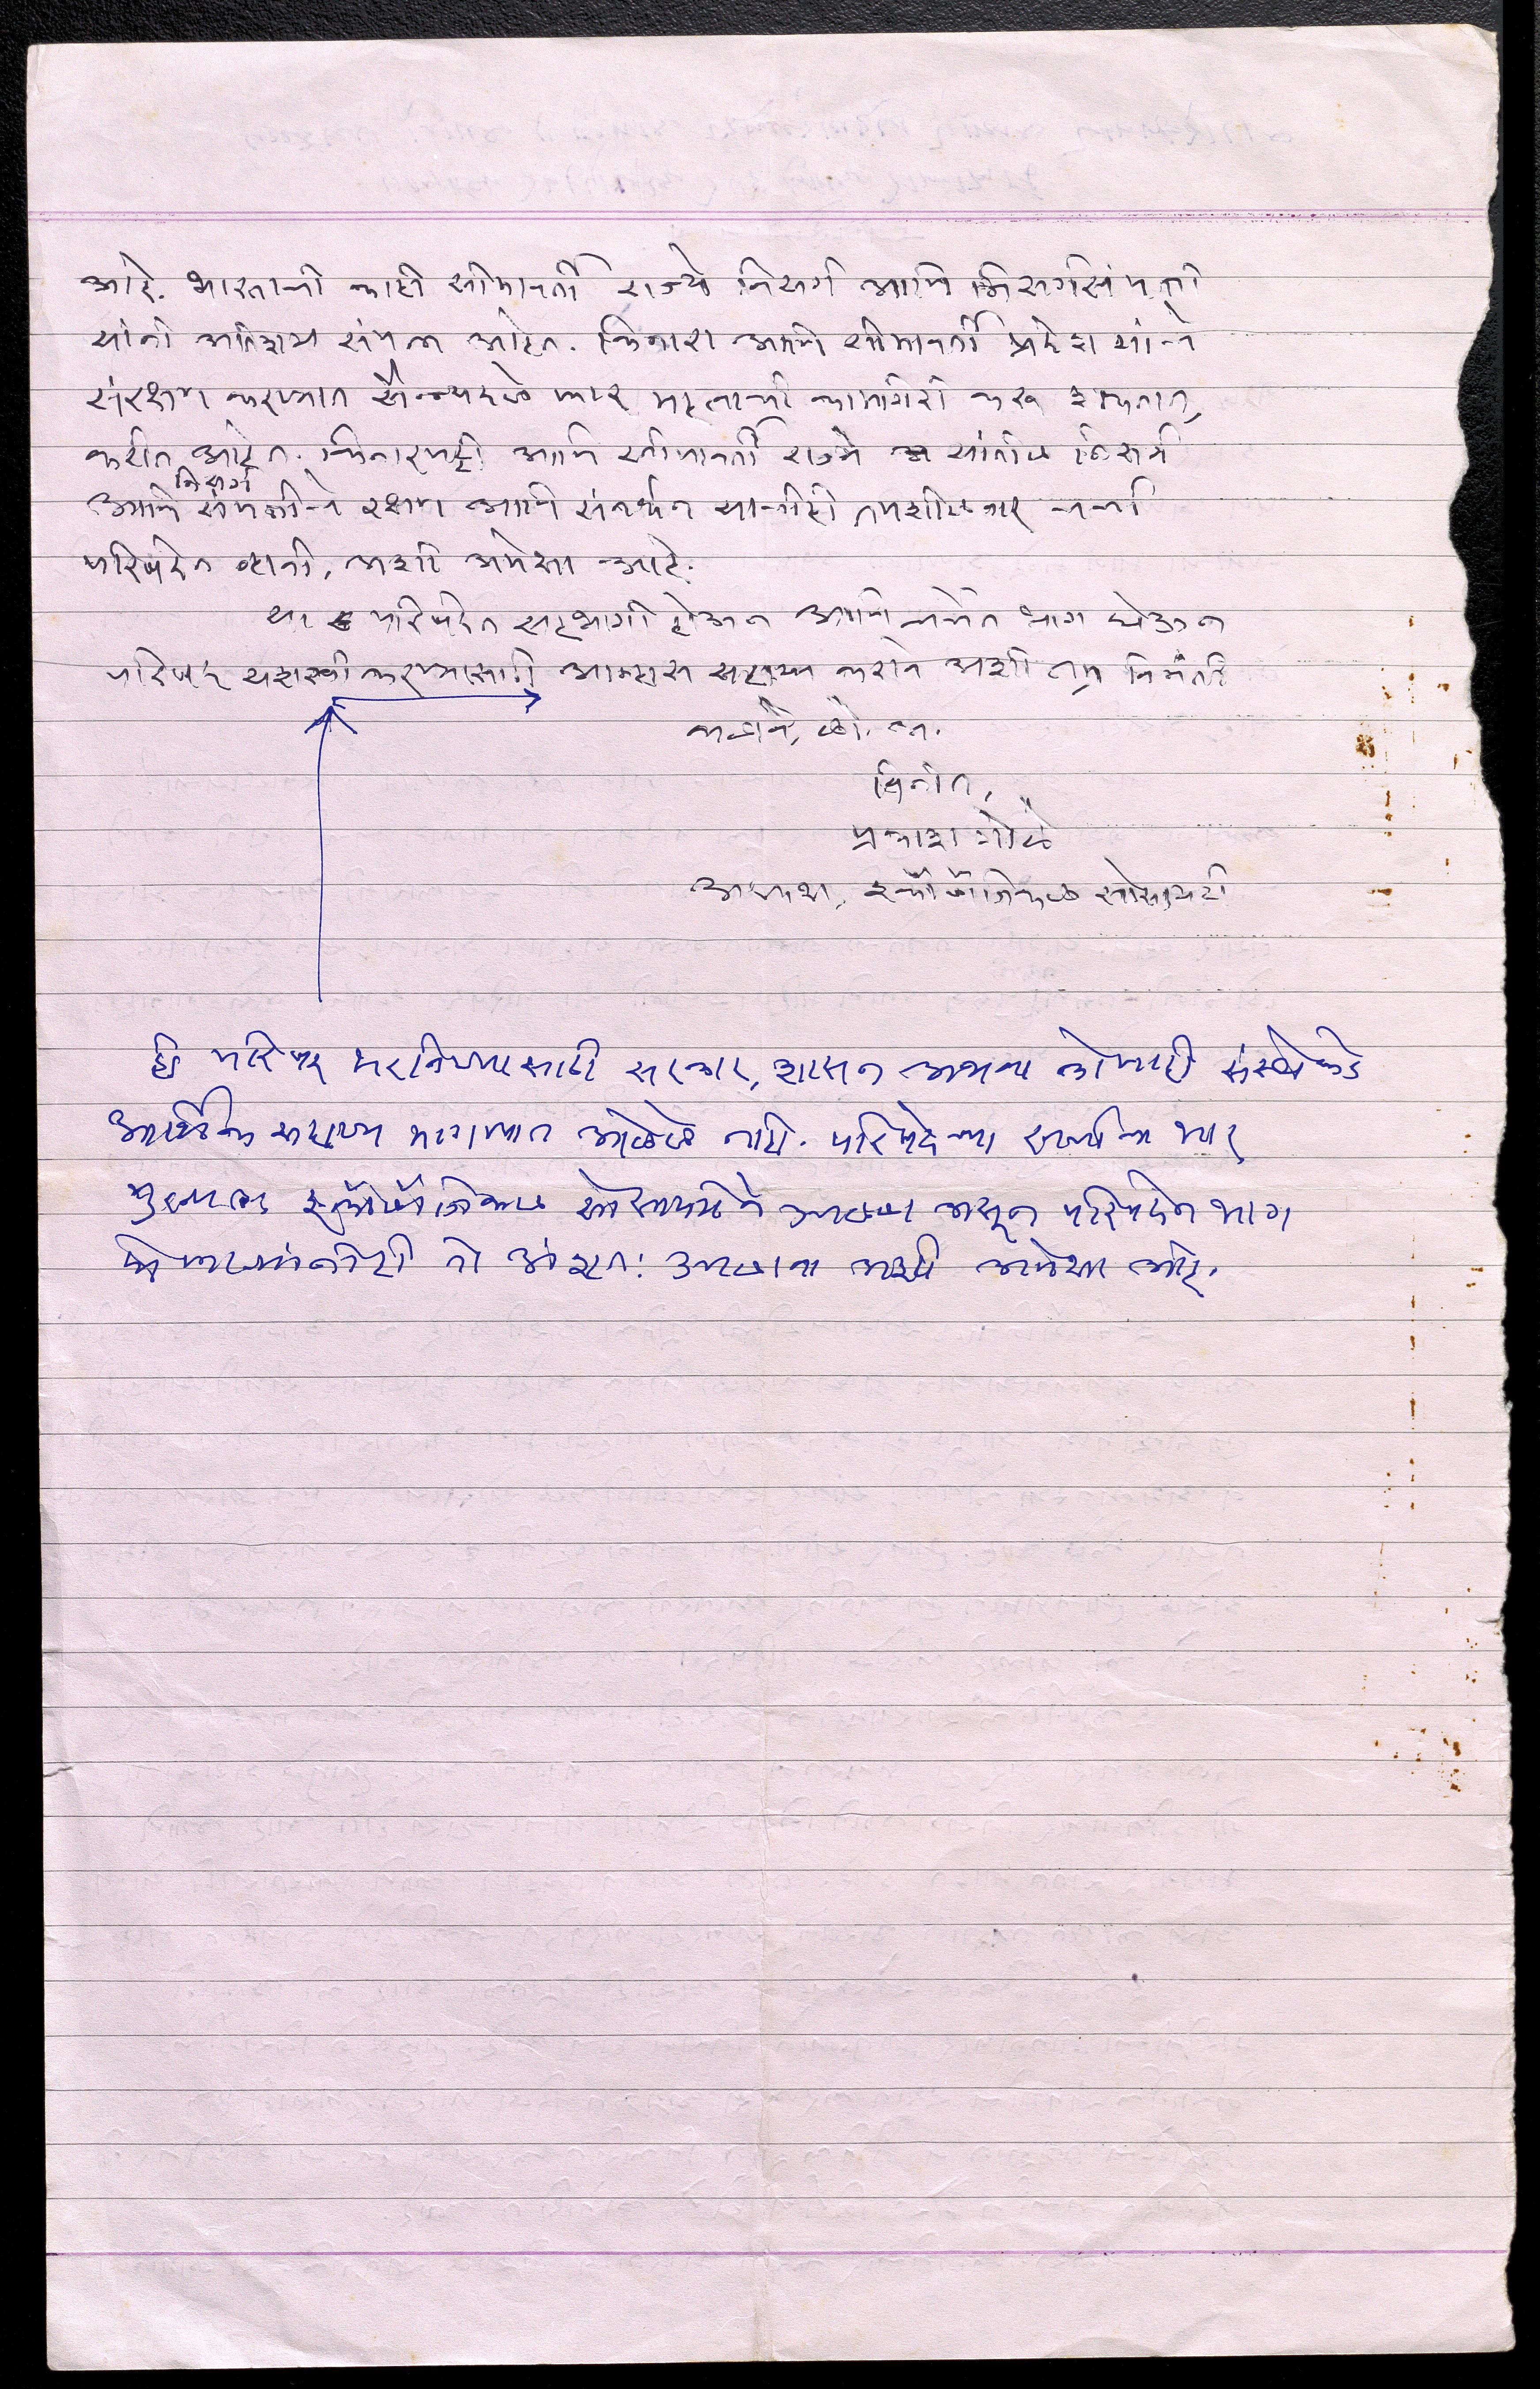 आहे. भारताची काही सीमावर्ती राज्ये निसर्ग आणि निसर्गसंपत्ती
यांनी अतिशय संपन्न आहेत. किनारा आणि सीमावर्ती प्रदेश यांचे
संरक्षण करण्यात सैन्यदळे फार महत्वाची कामगिरी करू शकतात,
करीत आहेत. किनारपट्टी आणि सीमावर्ती राज्ये यांतील निसर्ग
निसर्ग
आणि संपत्तीचे रक्षण आणि संवर्धन याचीही तपशीलवार चर्चा
परिषदेत व्हावी, अशी अपेक्षा आहे.
या परिषदेत सहभागी होऊन आणि चर्चेत भाग घेऊन
परिषद यशस्वी करण्यासाठी आम्हास सहाय्य करावे अशी नम्र विनंती
कळावे, लो. अ.
विनीत,
प्रकाश गोळे
अध्यक्ष, इकॉलॉजिकल सोसायटी
ही परिषद भरविण्यासाठी सरकार, शासन अथवा कोणाही संस्थेकडे
आर्थिक सहाय्य मागण्यात आलेले नाही. परिषदेच्या खर्चाचा भार
मुख्यतः इकॉलॉजिकल सोसायटीने उचलला असून परिषदेत भाग
घेणाऱ्यांनीही तो अंशतः उचलावा अशी अपेक्षा आहे.